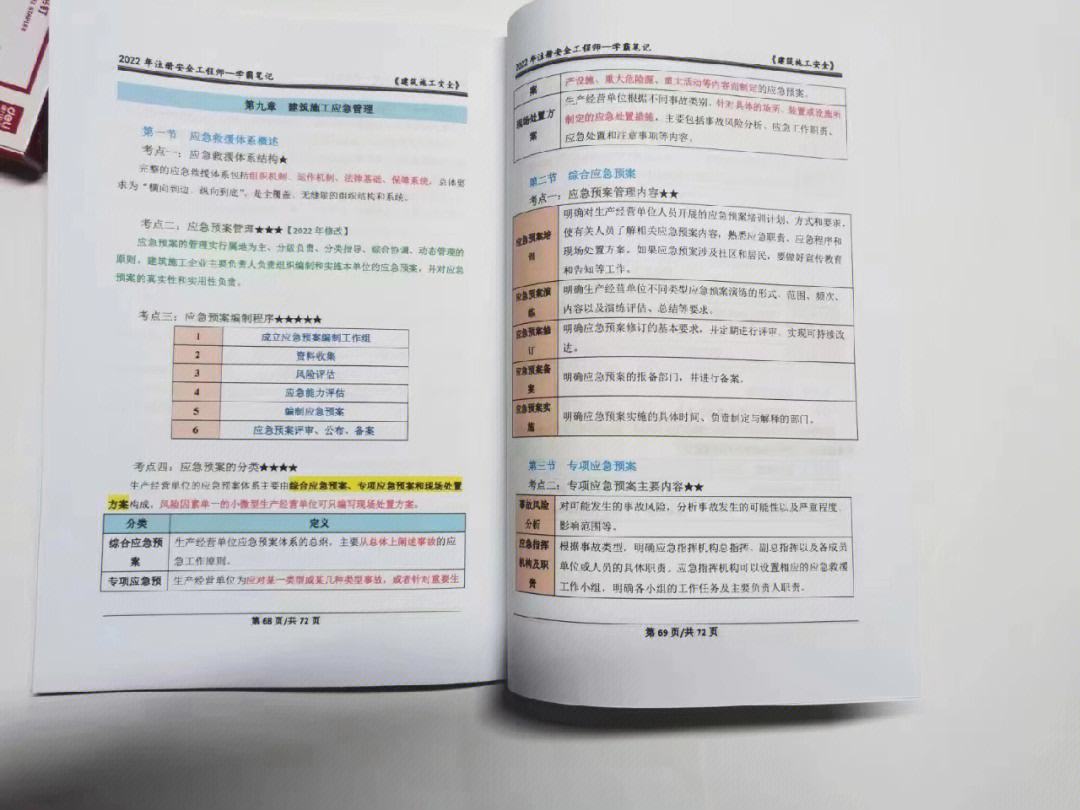 deli
2022 年注册安全工程师—学霸笔记
《建筑施工安全》
第九章 建筑施工应急管理
第一节 应急救援体系概述
考点一:应急救援体系结构★
完整的应急救援体系包括组织机制、运作机制、法律基础、保障系统,总体要
求为“横向到边、纵向到底”,是全覆盖、无缝隙的组织结构和系统。
考点二:应急预案管理★★★【2022 年修改】
应急预案的管理实行属地为主、分级负责、分类指导、综合协调、动态管理的
原则,建筑施工企业主要负责人负责组织编制和实施本单位的应急预案,并对应急
预案的真实性和实用性负责。
考点三:应急预案编制程序★★★★★
1 成立应急预案编制工作组
2 资料收集
3 风险评估
4 应急能力评估
5 编制应急预案
6 应急预案评审、公布、备案
考点四:应急预案的分类★★★★
生产经营单位的应急预案体系主要由综合应急预案、专项应急预案和现场处置
方案构成,风险因素单一的小微型生产经营单位可只编写现场处置方案。
分类 定义
综合应急预
案
生产经营单位应急预案体系的总纲,主要从总体上阐述事故的应
急工作原则。
专项应急预
生产经营单位为应对某一类型或某几种类型事故,或者针对重要生
第 68 页/共 72 页
2022 年注册安全工程师—学霸笔记
《建筑施工安全》
案
产设施、重大危险源、重大活动等内容而制定的应急预案。
现场处置方
案
生产经营单位根据不同事故类别,针对具体的场所、装置或设施所
制定的应急处置措施,主要包括事故风险分析、应急工作职责、
应急处置和注意事项等内容。
第二节 综合应急预案
考点一:应急预案管理内容★★
应急预案培
训
明确对生产经营单位人员开展的应急预案培训计划、方式和要求,
使有关人员了解相关应急预案内容,熟悉应急职责、应急程序和
现场处置方案。如果应急预案涉及社区和居民,要做好宣传教育
和告知等工作。
应急预案演
练
明确生产经营单位不同类型应急预案演练的形式、范围、频次、
内容以及演练评估、总结等要求。
应急预案修
订
明确应急预案修订的基本要求,并定期进行评审,实现可持续改
进。
应急预案备
案
明确应急预案的报备部门,并进行备案。
应急预案实
施
明确应急预案实施的具体时间、负责制定与解释的部门。
第三节 专项应急预案
考点二:专项应急预案主要内容★★
事故风险
分析
对可能发生的事故风险,分析事故发生的可能性以及严重程度、
影响范围等。
应急指挥
机构及职
责
根据事故类型,明确应急指挥机构总指挥、副总指挥以及各成员
单位或人员的具体职责。应急指挥机构可以设置相应的应急救援
工作小组,明确各小组的工作任务及主要负责人职责。
第 69 页/共 72 页